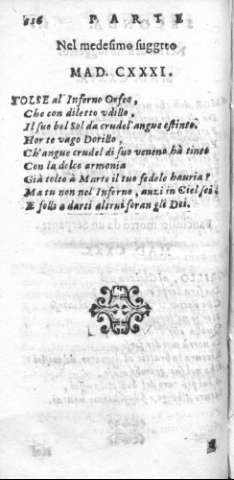 636 PARTE
Nel medesimo suggeto
MAD. CXXXI.
TOLSE al' Inferno Orfeo,
Che con diletto vdillo,
Il suo bel Sol da crudel' angue estinto.
Hor te vago Dorillo,
Ch'angue crudel di suo veneno hà tinto
Con la dolce armonia
Già tolto à Morte il tuo fedele hauria?
Ma tu non nel'Inferno, anzi in Ciel sei:
E folli a darti altrui foran gli Dei.